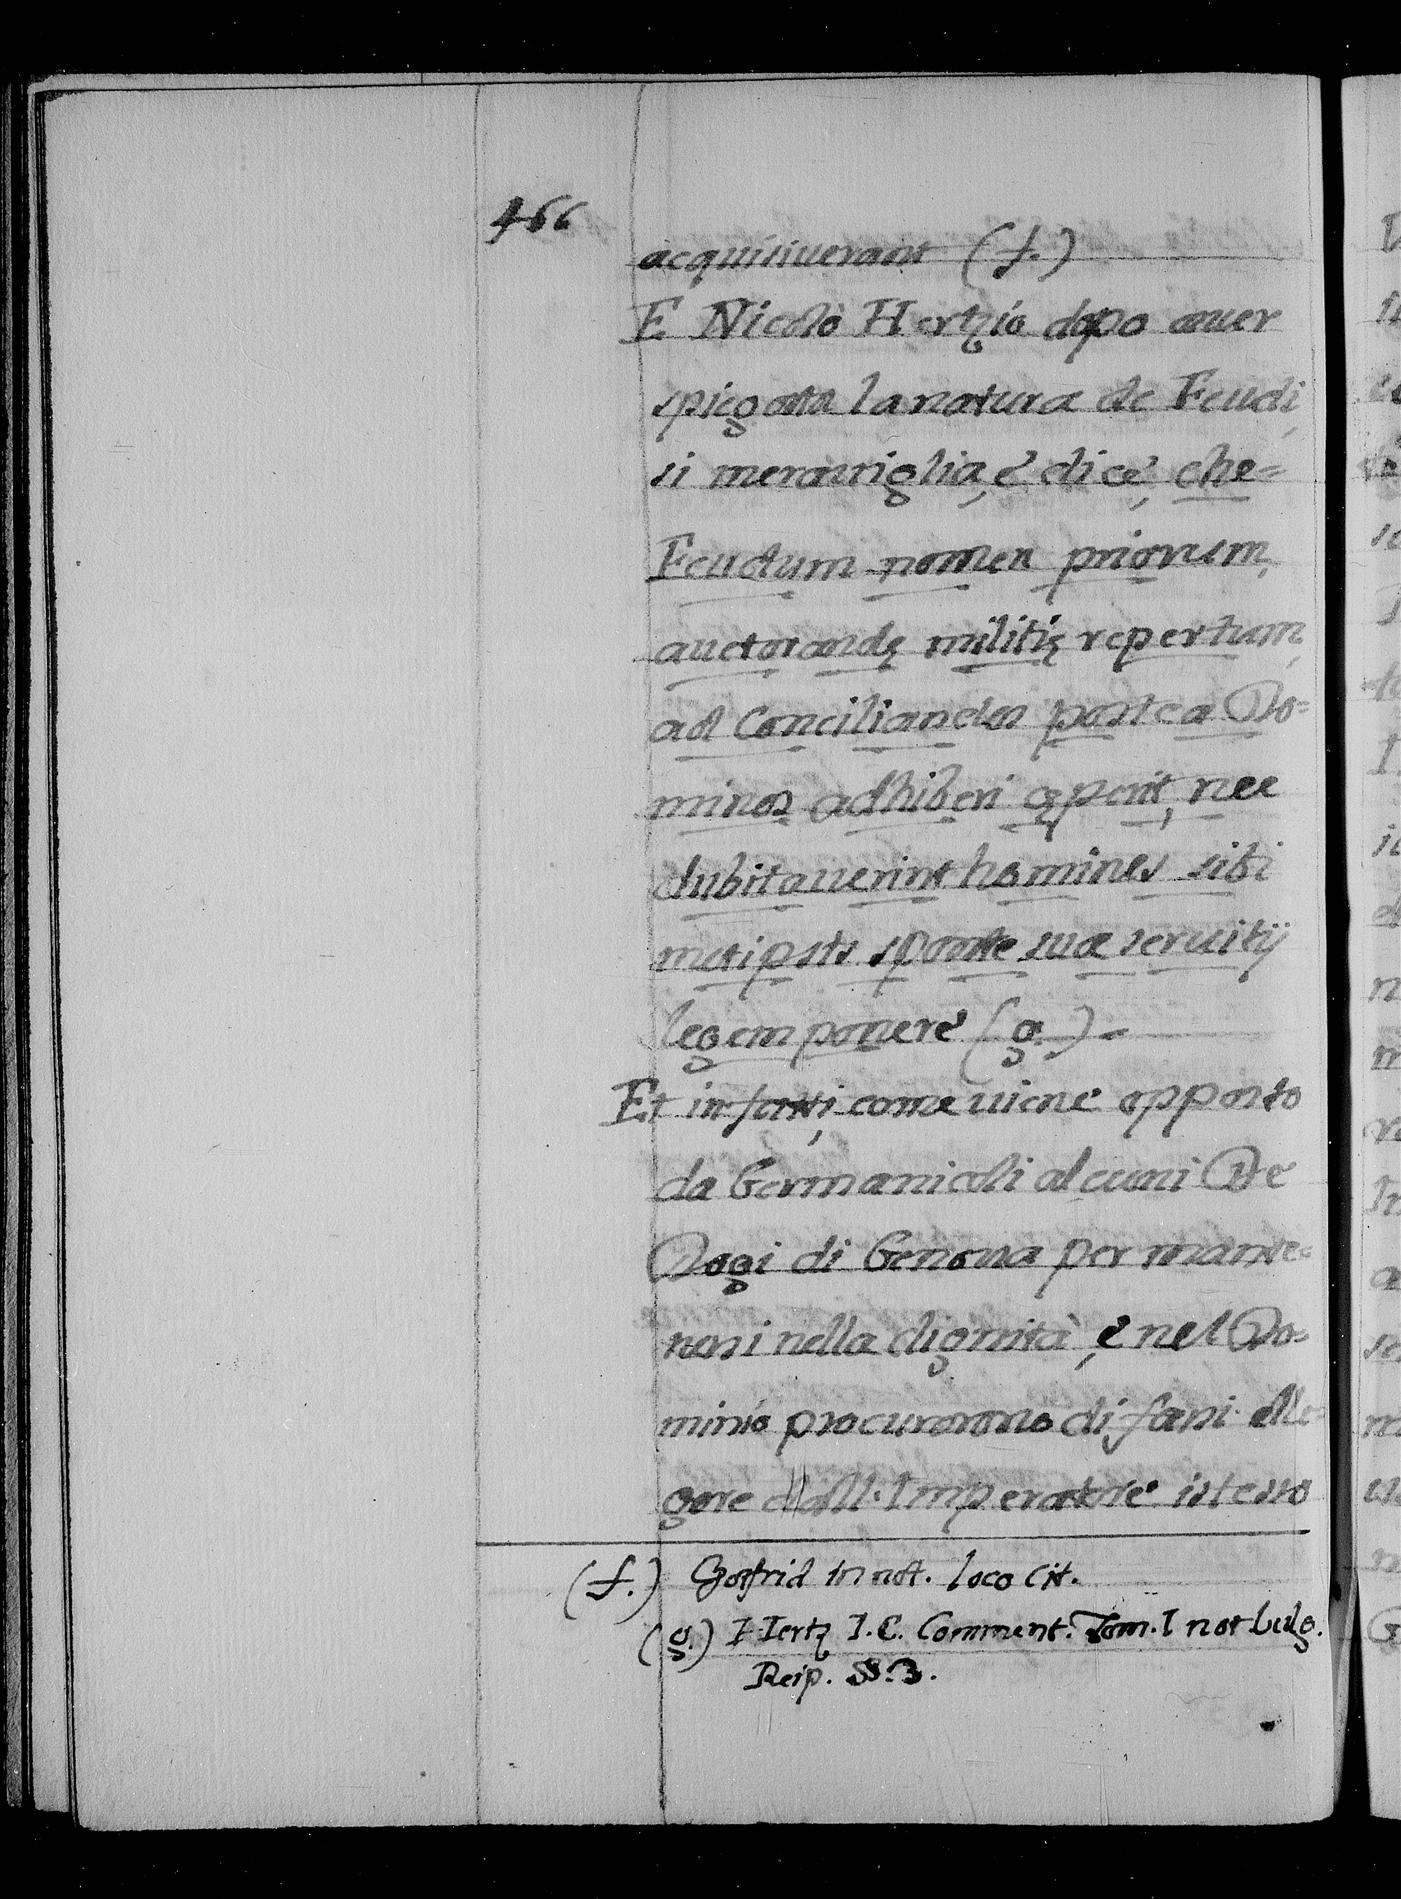 466
acquisiuerant (f.)
E Nicolò Hertzio dopo auer
spiegata la natura de Feudi,
si merauiglia, e dice, che=
Feudum nomen priorum,
auctorandę militię repertum,
ad Conciliandos postea Do=
minos adhiberi cęperit, nec
dubitauerint homines sibi
metipsis sponte suæ seruitij
legem ponere (g.)
Et in fatti, come uiene opposto
da Germanicoli alcuni De
Dogi di Genoua per mante=
nersi nella dignità, e nel Do=
minio procurorono di farsi elle=
gere dall. Imperatore istesso
(f.) Gosfrid in not. loco cit.
(g.) Hertz I. C. Comment. Tom. I not bulg.
Reip. §§. 3.